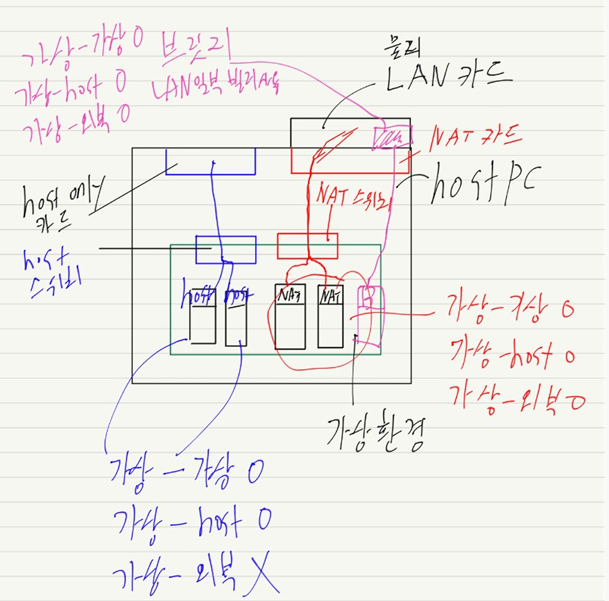 가상-가상 O
가상-host O
가상-외부 O
브릿지
LAN 일부 빌려서씀
물리
LAN 카드
NAT 카드
host PC
host only
카드
host
스위치
NAT 스위치
host
host
NAT
NAT
B
가상-가상 O
가상-host O
가상-외부 O
가상환경
가상 - 가상 O
가상 - host O
가상 - 외부 X